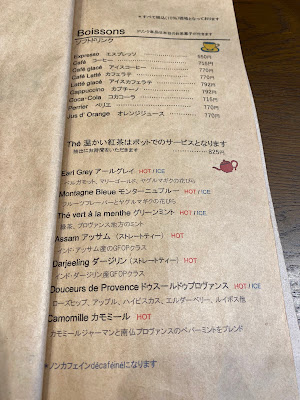 *すべて税込(10%)価格となっております
Boissons
ソフトドリンク
ドリンク単品は本日のお茶菓子が付きます
Expresso エスプレッソ 660円
Café コーヒー 715円
Café glacé アイスコーヒー 770円
Café Latté カフェラテ 770円
Latté glacé アイスカフェラテ 792円
Cappuccino カプチーノ 792円
Coca-Cola コカコーラ 715円
Perrier ペリエ 770円
Jus d' Orange オレンジジュース 770円
Thé 温かい紅茶はポットでのサービスとなります
抽出にお時間をいただきます 825円
Earl Grey アールグレイ HOT / ICE
ベルガモット、マリーゴールド、ヤグルマギクの花びら
Montagne Bleue モンターニュブルー HOT / ICE
フルーツフレーバーとヤグルマギクの花びら
Thé vert à la menthe グリーンミント HOT / ICE
緑茶、プロヴァンス地方のミント
Assam アッサム (ストレートティー) HOT
インド・アッサム産のGFOPクラス
Darjeeling ダージリン (ストレートティー) HOT
インド・ダージリン産GFOPクラス
Douceurs de Provence ドゥスールドゥプロヴァンス HOT / ICE
ローズヒップ、アップル、ハイビスカス、エルダーベリー、ルイボス他
Camomille カモミール HOT
カモミールジャーマンと南仏プロヴァンスのペパーミントをブレンド
*ノンカフェインdécaféinéになります